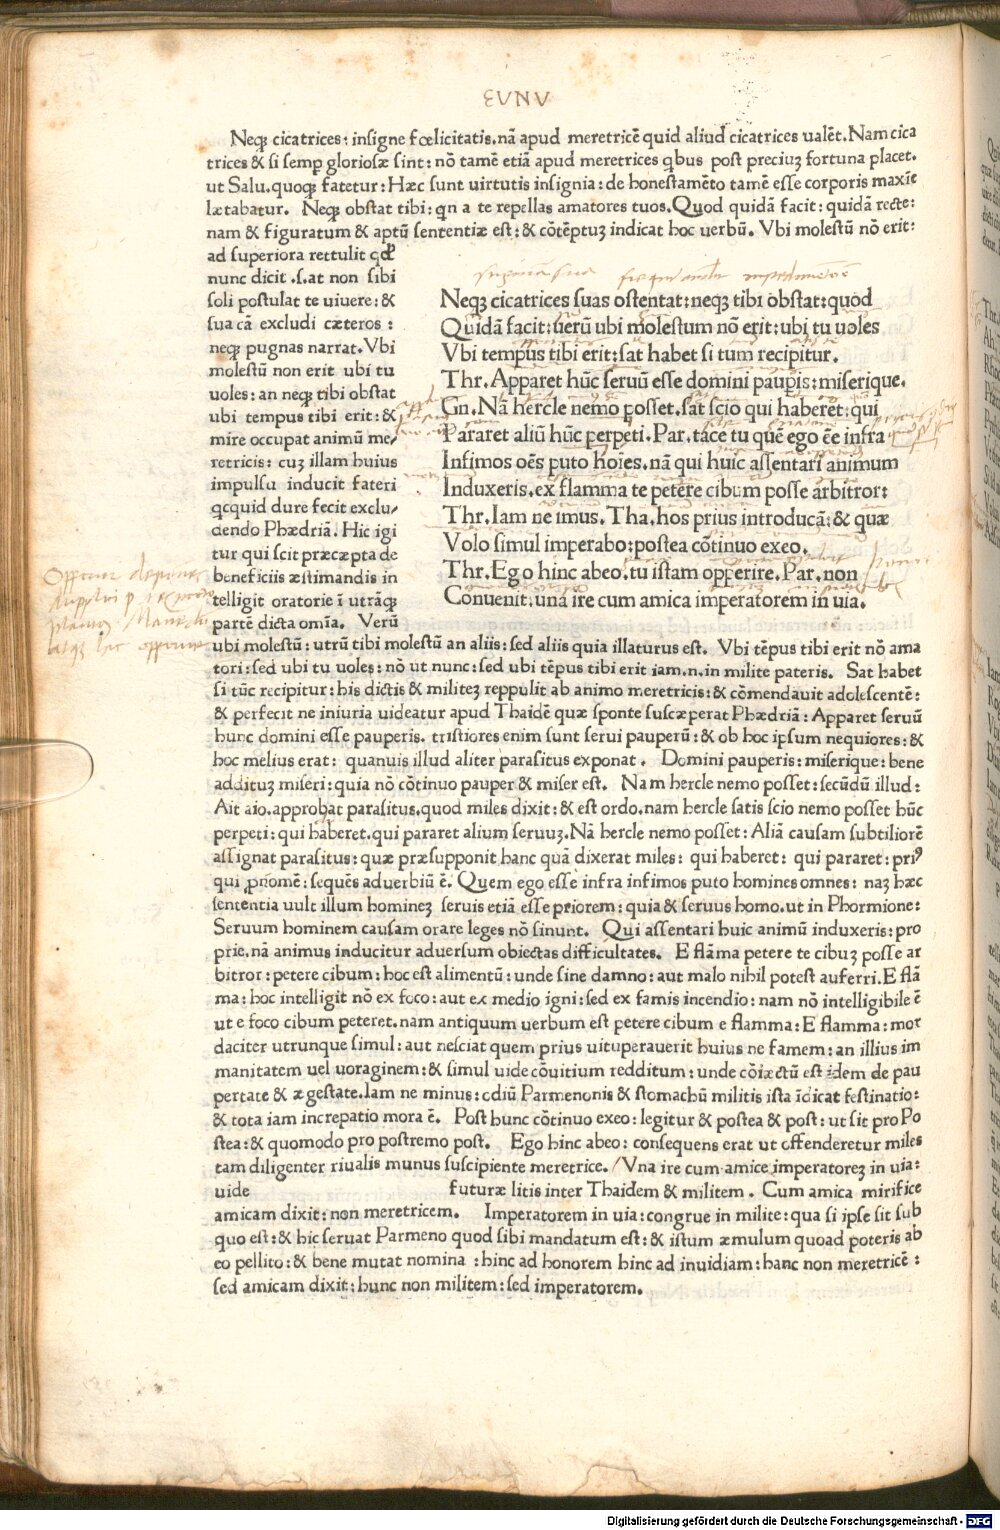 EVNV
Neqꝫ cicatrices: insigne fœlicitatis. nã apud meretricẽ quid aliud cicatrices ualẽt. Nam cica
trices & si semp gloriosæ sint: nõ tamẽ etiã apud meretrices qbus post preciuꝫ fortuna placet.
ut Salu. quoqꝫ fatetur: Hæc sunt uirtutis insignia: de honestamẽto tamẽ esse corporis maxie
lætabatur. Neqꝫ obstat tibi: qn a te repellas amatores tuos. Quod quidã facit: quidã recte:
nam & figuratum & aptũ sententiæ est: & cõtẽptuꝫ indicat hoc uerbũ. Vbi molestũ nõ erit:
ad superiora rettulit qđ
nunc dicit .s. at non sibi
soli postulat te uiuere: &
sua cã excludi cæteros:
neqꝫ pugnas narrat. Vbi
molestũ non erit ubi tu
uoles: an neqꝫ tibi obstat
ubi tempus tibi erit: &
mire occupat animũ me/
retricis: cuꝫ illam huius
impulsu inducit fateri
qcquid dure fecit exclu/
dendo Phædriã. Hic igi
tur qui scit præcæpta de
beneficiis æstimandis in
telligit oratorie ĩ utrãqꝫ
partẽ dicta omĩa. Verũ
Neqꝫ cicatrices suas ostentat: neqꝫ tibi obstat: quod
Quidã facit: uerũ ubi molestum nõ erit: ubi tu uoles
Vbi tempus tibi erit: sat habet si tum recipitur.
Thr. Apparet hũc seruũ esse domini paupis: miserique.
Gn. Nã hercle nemo posset. sat scio qui haberet: qui
Pararet aliũ hũc perpeti. Par. tace tu quẽ ego ẽe infra
Infimos oẽs puto hoĩes. nã qui huic assentari animum
Induxeris. ex flamma te petere cibum posse arbitror:
Thr. Iam ne imus. Tha. hos prius introducã: & quæ
Volo simul imperabo: postea cõtinuo exeo.
Thr. Ego hinc abeo. tu istam opperire. Par. non
Conuenit. una ire cum amica imperatorem in uia.
ubi molestũ: utrũ tibi molestũ an aliis: sed aliis quia illaturus est. Vbi tẽpus tibi erit nõ ama
tori: sed ubi tu uoles: nõ ut nunc: sed ubi tẽpus tibi erit iam .n. in milite pateris. Sat habet
si tũc recipitur: his dictis & militeꝫ reppulit ab animo meretricis: & cõmendauit adolescentẽ:
& perfecit ne iniuria uideatur apud Thaidẽ quæ sponte suscæperat Phædriã: Apparet seruũ
hunc domini esse pauperis. tristiores enim sunt serui pauperũ: & ob hoc ipsum nequiores: &
hoc melius erat: quanuis illud aliter parasitus exponat. Domini pauperis: miserique: bene
addituꝫ miseri: quia nõ cõtinuo pauper & miser est. Nam hercle nemo posset: secũdũ illud:
Ait aio. approbat parasitus. quod miles dixit: & est ordo. nam hercle satis scio nemo posset hũc
perpeti: qui haberet. qui pararet alium seruuꝫ. Nã hercle nemo posset: Aliã causam subtiliorẽ
assignat parasitus: quæ præsupponit hanc quã dixerat miles: qui haberet: qui pararet: priꝰ
qui pnomẽ: sequẽs aduerbiũ ẽ. Quem ego esse infra infimos puto homines omnes: naꝫ hæc
sententia uult illum homineꝫ seruis etiã esse priorem: quia & seruus homo. ut in Phormione:
Seruum hominem causam orare leges nõ sinunt. Qui assentari huic animũ induxeris: pro
prie. nã animus inducitur aduersum obiectas difficultates. E flãma petere te cibuꝫ posse ar
bitror: petere cibum: hoc est alimentũ: unde sine damno: aut malo nihil potest auferri. E flã
ma: hoc intelligit nõ ex foco: aut ex medio igni: sed ex famis incendio: nam nõ intelligibile ẽ
ut e foco cibum peteret. nam antiquum uerbum est petere cibum e flamma: E flamma: mor
daciter utrunque simul: aut nesciat quem prius uituperauerit huius ne famem: an illius im
manitatem uel uoraginem: & simul uide cõuitium redditum: unde cõiectũ est idem de pau
pertate & ægestate. Iam ne minus: odiũ Parmenonis & stomachũ militis ista idicat festinatio:
& tota iam increpatio mora ẽ. Post hunc cõtinuo exeo: legitur & postea & post: ut sit pro Po
stea: & quomodo pro postremo post. Ego hinc abeo: consequens erat ut offenderetur miles
tam diligenter riualis munus suscipiente meretrice. /Vna ire cum amice imperatoreꝫ in uia:
uide futuræ litis inter Thaidem & militem. Cum amica mirifice
amicam dixit: non meretricem. Imperatorem in uia: congrue in milite: qua si ipse sit sub
quo est: & hic seruat Parmeno quod sibi mandatum est: & istum æmulum quoad poteris ab
eo pellito: & bene mutat nomina: hinc ad honorem hinc ad inuidiam: hanc non meretricẽ:
sed amicam dixit: hunc non militem: sed imperatorem.
Digitalisierung gefördert durch die Deutsche Forschungsgemeinschaft - DFG